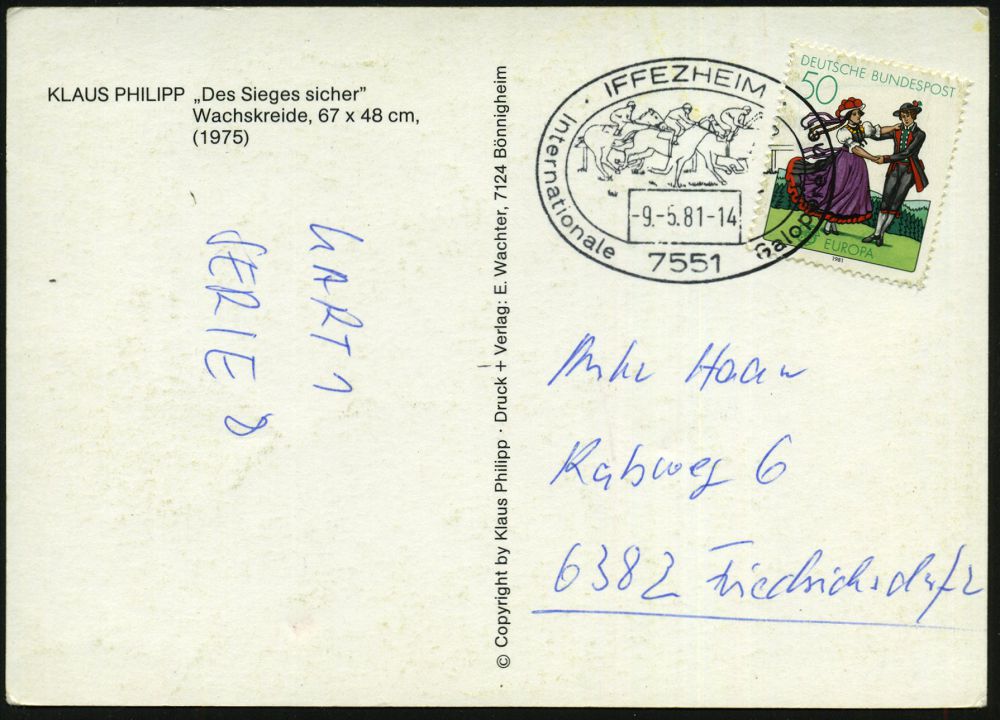 KLAUS PHILIPP „Des Sieges sicher”
Wachskreide, 67 x 48 cm,
(1975)
KART 1
SERIE 8
© Copyright by Klaus Philipp · Druck + Verlag: E. Wachter, 7124 Bönnigheim
· IFFEZHEIM ·
Internationale
-9.-5.81-14
7551
DEUTSCHE BUNDESPOST
50
EUROPA
1981
Haan
6
6382 Friedrichsdorf 2